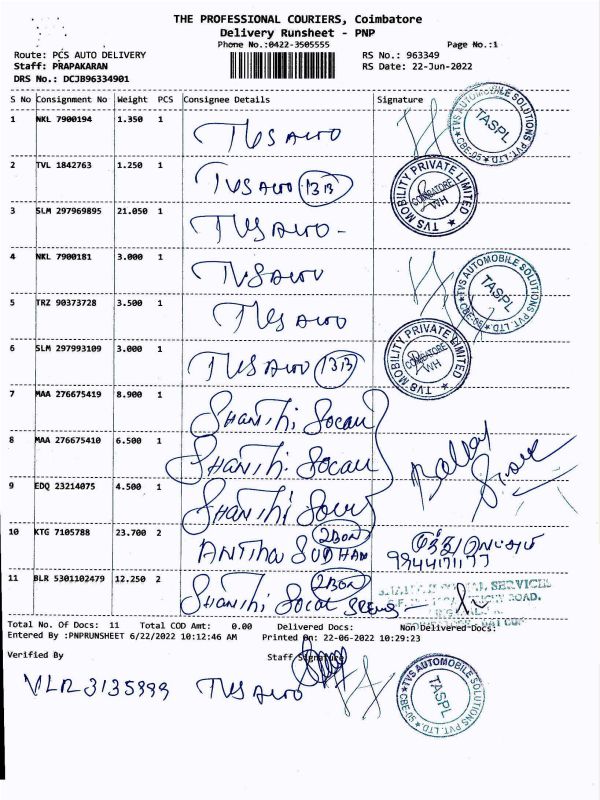 THE PROFESSIONAL COURIERS, Coimbatore
Delivery Runsheet - PNP
Phone No.:0422-3505555
Page No.:1
Route: PCS AUTO DELIVERY
RS No.: 963349
Staff: PRAPAKARAN
RS Date: 22-Jun-2022
DRS No.: DCJB96334901
S No Consignment No Weight PCS Consignee Details Signature
1 NKL 7900194 1.350 1 TVS Auto
TVS AUTOMOBILE SOLUTIONS PVT. LTD. TASPL
2 TVL 1842763 1.250 1 TVS Auto 13B
TVS MOBILITY PRIVATE LIMITED COIMBATORE WH
3 SLM 297969895 21.050 1 TVS Auto -
4 NKL 7900181 3.000 1 TVS Auto
TVS AUTOMOBILE SOLUTIONS PVT. LTD. TASPL
5 TRZ 90373728 3.500 1 TVS Auto
6 SLM 297993109 3.000 1 TVS Auto 13B
TVS MOBILITY PRIVATE LIMITED COIMBATORE WH
7 MAA 276675419 8.900 1 Shanthi Socau
8 MAA 276675410 6.500 1 Shanthi Socau
9 EDQ 23214075 4.500 1 Shanthi
10 KTG 7105788 23.700 2 2Box
11 BLR 5301102479 12.250 2 Shanthi Social 2Box
SOCIAL SERVICES
ROAD.
Total No. Of Docs: 11 Total COD Amt: 0.00 Delivered Docs: Non Delivered Docs:
Entered By :PNPRUNSHEET 6/22/2022 10:12:46 AM Printed On: 22-06-2022 10:29:23
Verified By Staff Signature
VLR 3135999 TVS Auto
TVS AUTOMOBILE SOLUTIONS PVT. LTD. TASPL